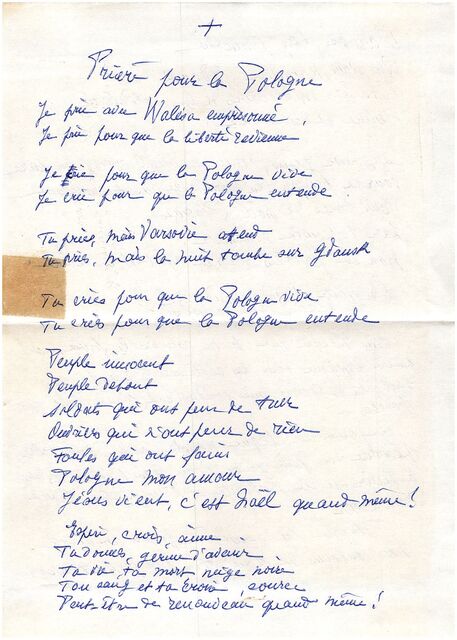 +
Prière pour la Pologne
Je prie avec Walesa emprisonné,
Je prie pour que la liberté revienne
Je crie pour que la Pologne vive
Je crie pour que la Pologne entende
Tu pries, mais Varsovie attend
Tu pries, mais la nuit tombe sur Gdansk
Tu cries pour que la Pologne vive
Tu cries pour que la Pologne entende
Peuple innocent
Peuple debout
Soldats qui ont peur de tuer
Ouvriers qui n'ont peur de rien
Foules qui ont faim
Pologne mon amour
Jésus vient, c'est Noël quand même!
Espère, crois, aime
Ta douleur, germe d'avenir
Ta vie, ta mort, neige noire
Ton sang et ta croix, source
Peut-être de renouveau quand même!